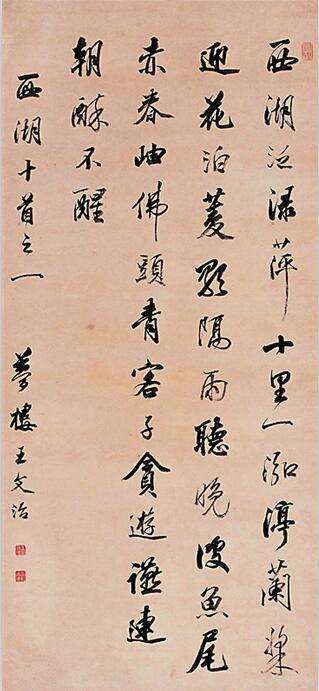 西湖泛渌萍十里一泓渟蘭槳
迎花泊菱歌隔雨聽晚波魚尾
赤春岫佛頭青客子貪遊讌連
朝醉不醒
西湖十首之一　夢樓王文治